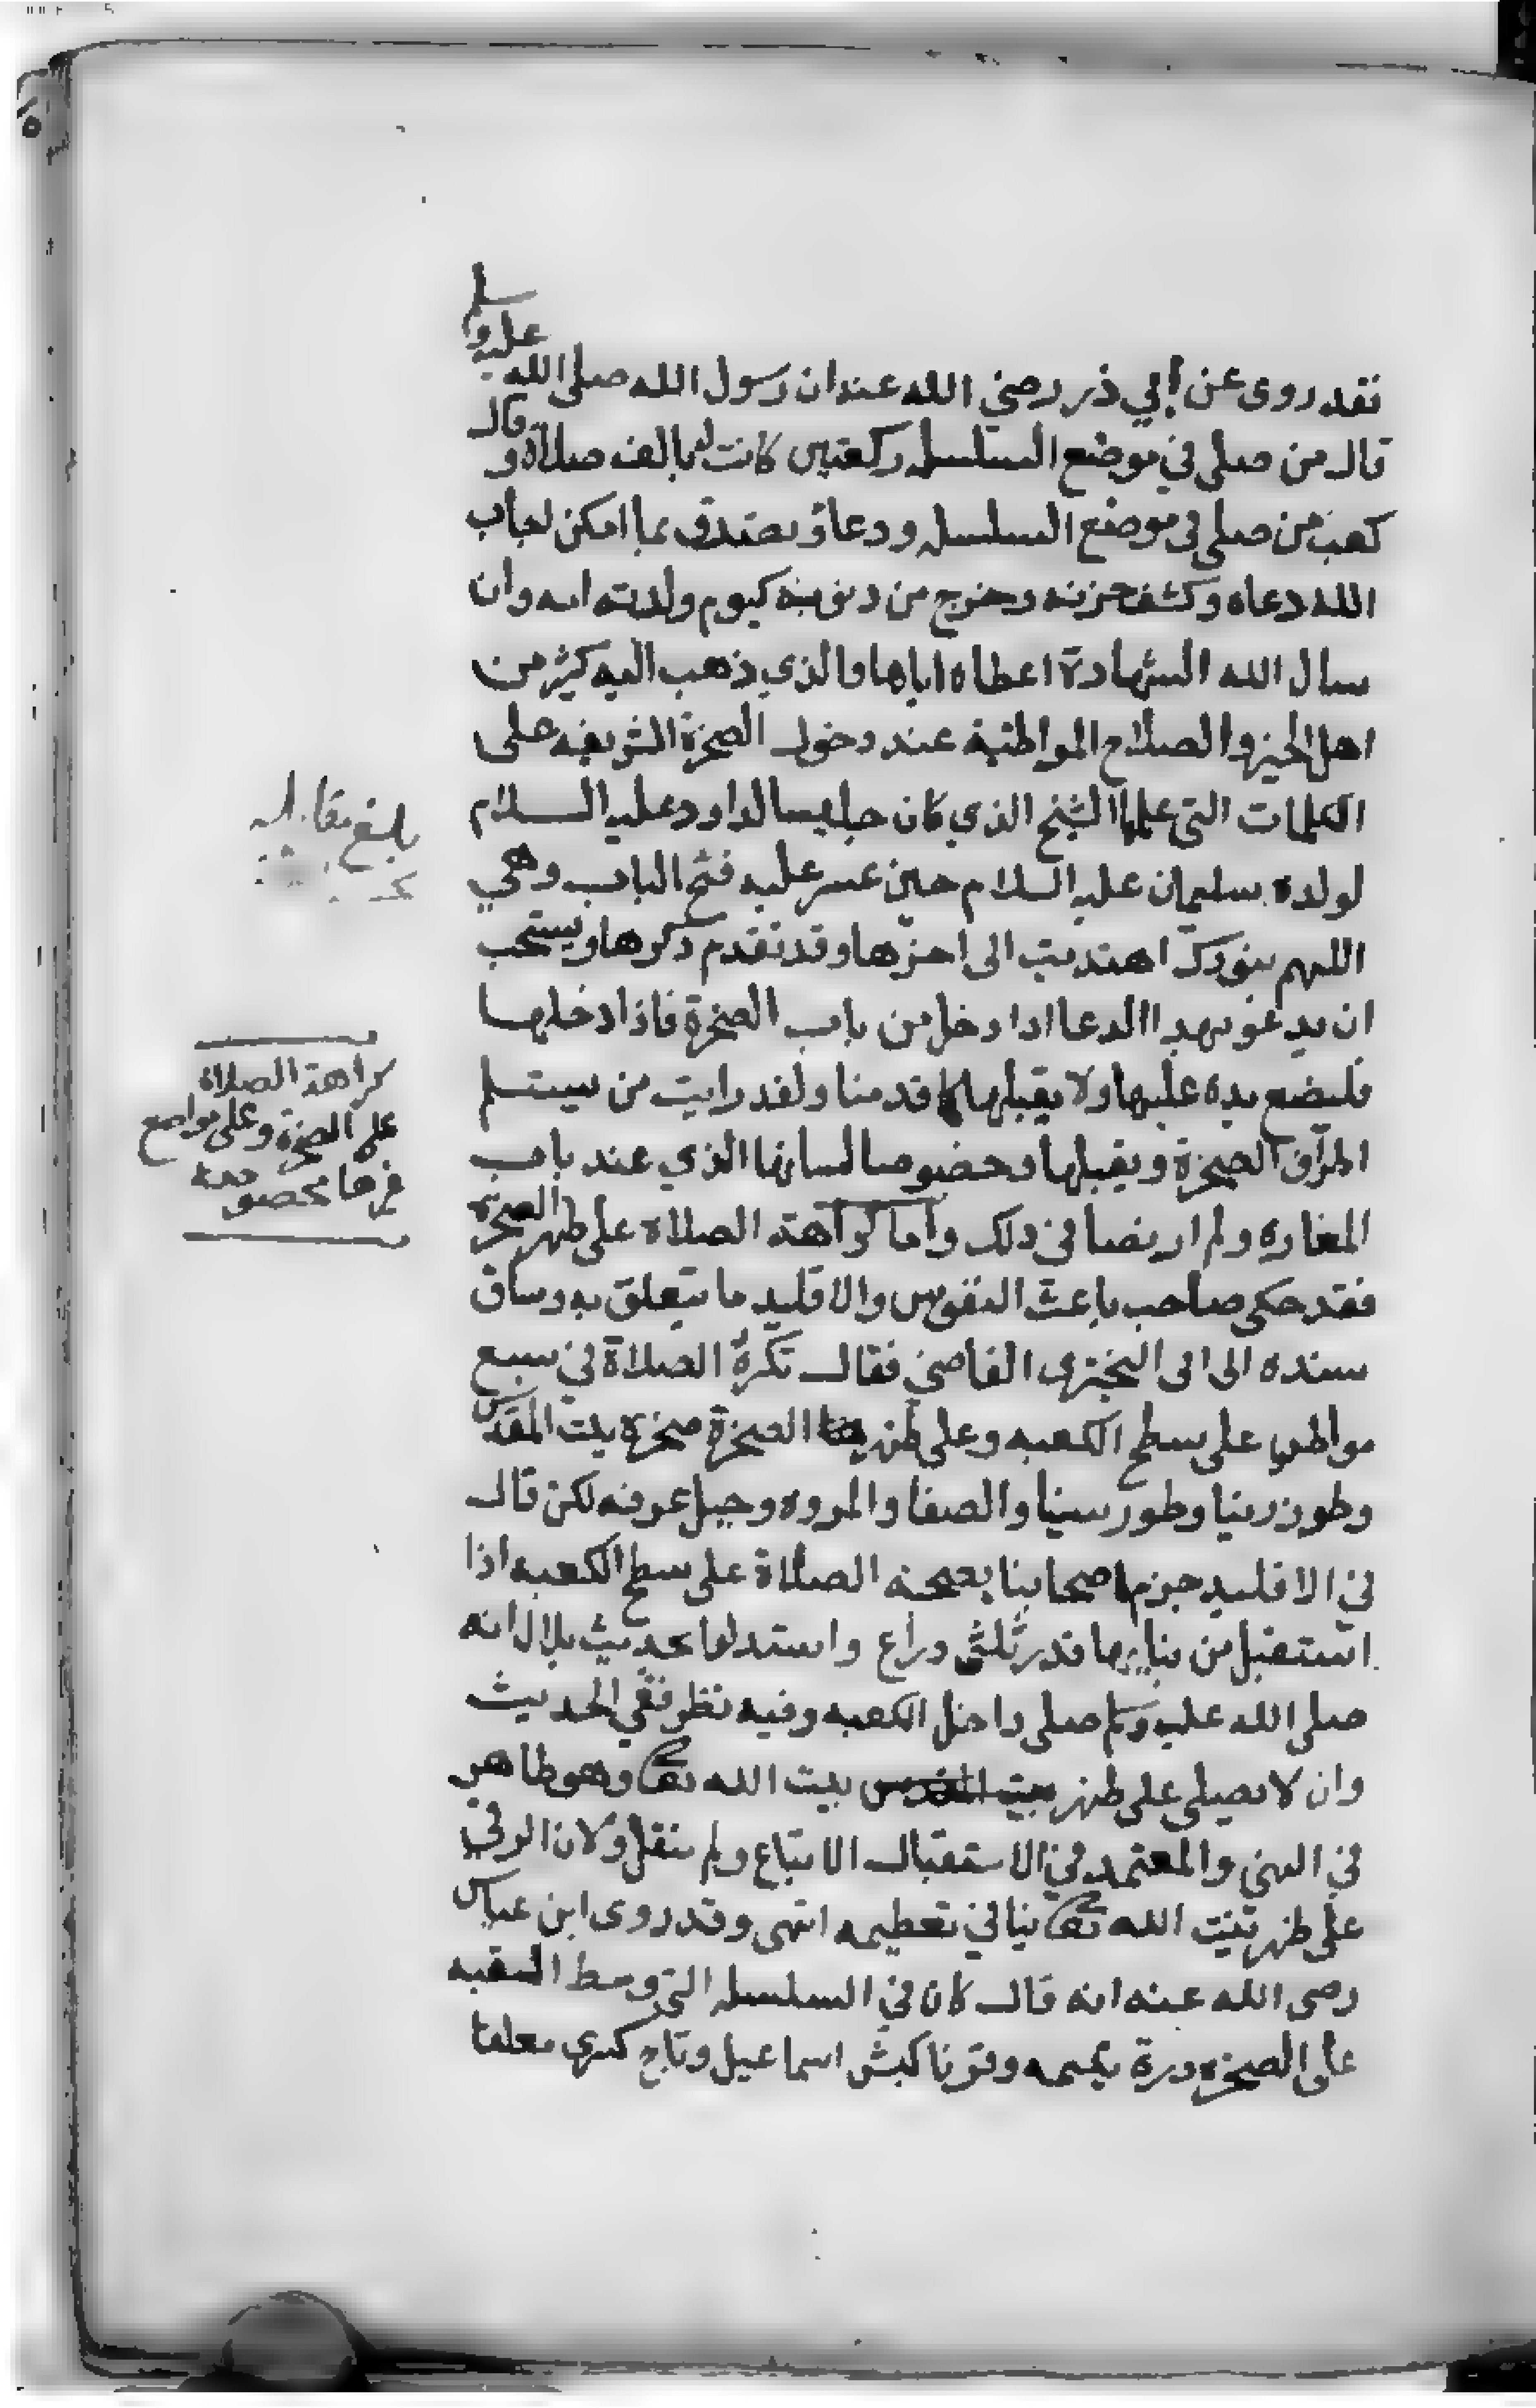 فقد روى عن أبي ذر رضي الله عنه ان رسول الله صلى الله عليه وسلم
قال من صلى في موضع السلسله ركعتين كانت له بالف صلاة وقال
كعب من صلى في موضع السلسله ودعا وتصدق بما امكن اجاب
الله دعاه وكشف حزنه وخرج من دنوبه كيوم ولدته امه وان
سال الله الشهادة اعطاه اياها والذي ذهب اليه كثير من
اهل الخير والصلاح المواظبة عند دخول الصخرة الشريفه على
الكلمات التي علمها الشيخ الذي كان جليسا لداود عليه السلام
لولده سليمان عليه السلام حين عسر عليه فتح الباب وهي
اللهم بنورك اهتديت الى اخرها وقد تقدم ذكرها ويستحب
ان يدعو بهدا الدعا ادا دخل من باب الصخرة فاذا دخلها
فليضع يده عليها ولا يقبلها كما قدمنا ولقد رايت من يستلم
اطراف الصخرة ويقبلها وخصوصا لسانها الذي عند باب
المغاره ولم ار نصا في دلك وأما كراهة الصلاة على ظهر الصخرة
فقد حكى صاحب باعث النفوس والاقليد ما يتعلق به وساق
سنده الى ابى البختري القاضي فقال تكره الصلاة في سبع
مواطن على سطح الكعبه وعلى ظهر الصخرة صخرة بيت المقدس
وطور زيتا وطور سينا والصفا والمروه وجبل عرفه لكن قال
في الاقليد جزم اصحابنا بصحة الصلاة على سطح الكعبه اذا
استقبل من بنايها قدر ثلثى دراع واستدلوا بحديث بلال انه
صلى الله عليه وسلم صلى داخل الكعبه وفيه نظر ففي الحديث
وان لا يصلى على ظهر بيت المقدس بيت الله تعالى وهو ظاهر
في النهي والمعتمد في الاستقبال الاتباع ولم ينقل ولان الرقي
على ظهر بيت الله تعالى ينافي تعظيمه انتهى وقد روى ابن عباس
رضى الله عنه انه قال كان في السلسله التي وسط القبه
على الصخره درة يتيمه وقرنا كبش اسماعيل وتاج كسرى معلقا
بلغ مقابله
كراهة الصلاة
على الصخرة وعلى مواضع
غيرها مخصوصة